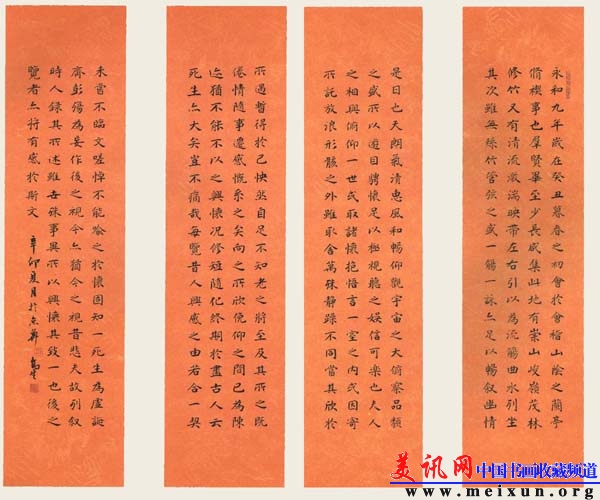 永和九年歲在癸丑暮春之初會於會稽山陰之蘭亭
脩禊事也群賢畢至少長咸集此地有崇山峻嶺茂林
修竹又有清流激湍映帶左右引以為流觴曲水列坐
其次雖無絲竹管弦之盛一觴一詠亦足以暢叙幽情
是日也天朗氣清惠風和暢仰觀宇宙之大俯察品類
之盛所以遊目騁懷足以極視聽之娛信可樂也夫人
之相與俯仰一世或取諸懷抱悟言一室之內或因寄
所託放浪形骸之外雖取舍萬殊靜躁不同當其欣於
所遇暫得於己快然自足不知老之將至及其所之既
倦情隨事遷感慨系之矣向之所欣俛仰之間已為陳
迹猶不能不以之興懷況修短隨化終期於盡古人云
死生亦大矣豈不痛哉每覽昔人興感之由若合一契
未嘗不臨文嗟悼不能喻之於懷固知一死生為虛誕
齊彭殤為妄作後之視今亦猶今之視昔悲夫故列叙
時人錄其所述雖世殊事異所以興懷其致一也後之
覽者亦將有感於斯文
辛卯夏月於
美讯网 中国书画收藏频道
www.meixun.org